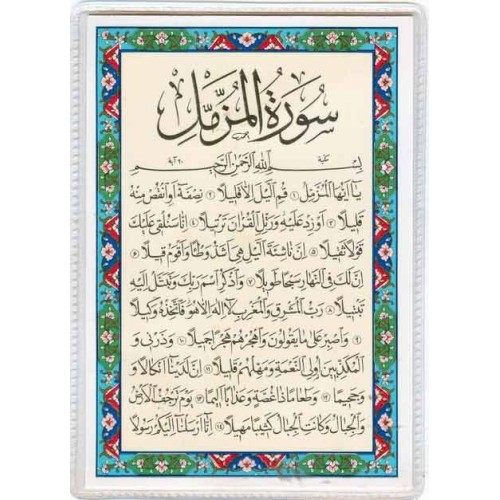 سورة المزمل
بسم الله الرحمن الرحيم
يا أيها المزمل ١ قم الليل إلا قليلا ٢ نصفه أو انقص منه
قليلا ٣ أو زد عليه ورتل القرآن ترتيلا ٤ إنا سنلقي عليك
قولا ثقيلا ٥ إن ناشئة الليل هي أشد وطئا وأقوم قيلا ٦
إن لك في النهار سبحا طويلا ٧ واذكر اسم ربك وتبتل إليه
تبتيلا ٨ رب المشرق والمغرب لا إله إلا هو فاتخذه وكيلا
٩ واصبر على ما يقولون واهجرهم هجرا جميلا ١٠ وذرني و
المكذبين أولي النعمة ومهلهم قليلا ١١ إن لدينا أنكالا و
جحيما ١٢ وطعاما ذا غصة وعذابا أليما ١٣ يوم ترجف الأرض
والجبال وكانت الجبال كثيبا مهيلا ١٤ إنا أرسلنا إليكم رسولا